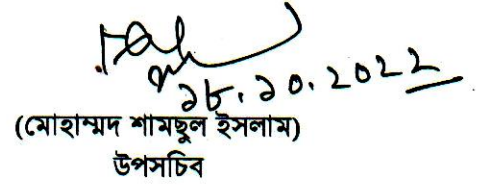 ১৮.১০.২০২২
(মোহাম্মদ শামছুল ইসলাম)
উপসচিব